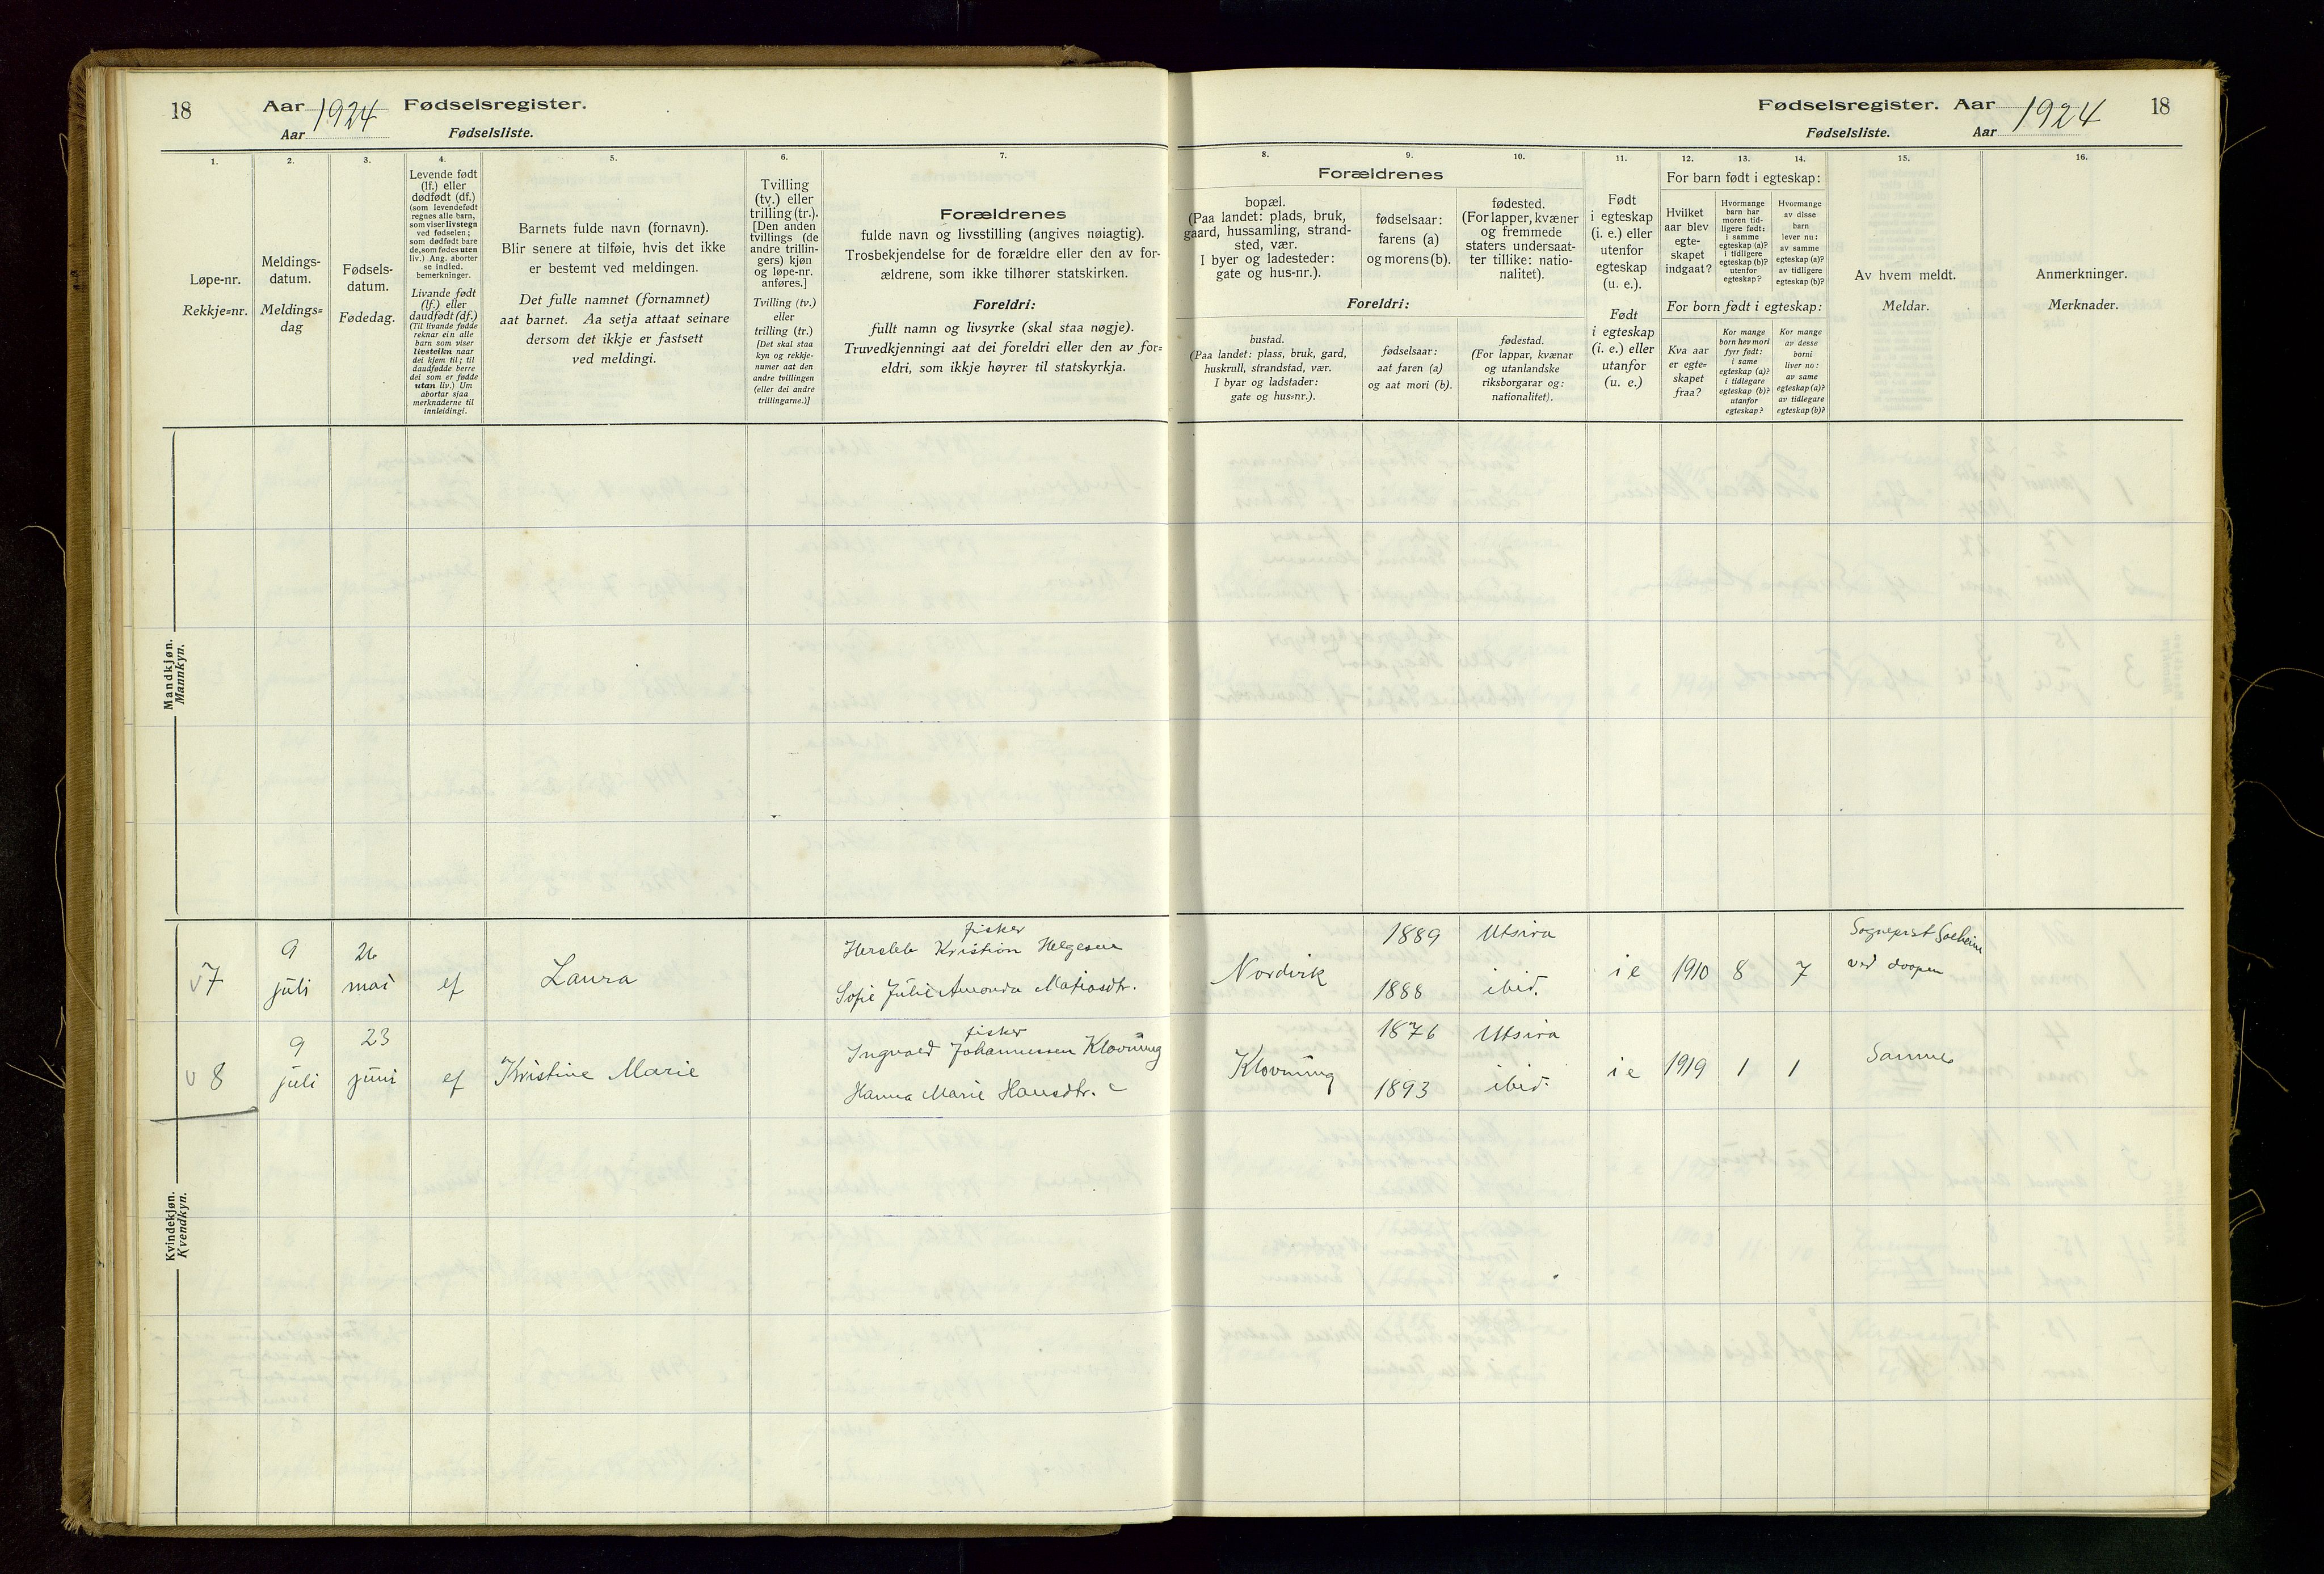 18 Aar 1924 Fødselsregister.
Aar Fødselsliste.
1.
Løpe-nr.
Rekkje=nr.
2.
Meldings-
datum.
Meldings=
dag
3.
Fødsels-
datum.
Fødedag.
4.
Levende født
(lf.) eller
dødfødt (df.)
(som levendefødt
regnes alle barn,
som viser livstegn
ved fødselen;
som dødfødt bare
de, som fødes uten
liv.) Ang. aborter
se indled.
bemerkninger.
Livande født
(lf.) eller
daudfødt (df.)
(Til livande fødde
reknar ein alle
barn som viser
livsteikn naar
dei kjem til; til
daudfødde berre
dei som er fødde
utan liv.) Um
abortar sjaa
merknaderne til
innleidingi.
5.
Barnets fulde navn (fornavn).
Blir senere at tilføie, hvis det ikke
er bestemt ved meldingen.
Det fulle namnet (fornamnet)
aat barnet. Aa setja attaat seinare
dersom det ikkje er fastsett
ved meldingi.
6.
Tvilling
(tv.) eller
trilling (tr.).
[Den anden
tvillings (de
andre trillin-
gers) kjøn
og løpe-nr.
anføres.]
Tvilling (tv.)
eller
trilling (tr.)
[Det skal staa
kyn og rekkje-
numer aat den
andre tvillingen
(eller dei andre
trillingarne.)]
7.
Forældrenes
fulde navn og livsstilling (angives nøiagtig).
Trosbekjendelse for de forældre eller den av for-
ældrene, som ikke tilhører statskirken.
Foreldri:
fullt namn og livsyrke (skal staa nøgje).
Truvedkjenningi aat dei foreldri eller den av for=
eldri, som ikkje høyrer til statskyrkja.
Mandkjøn.
Mannkyn.
v 7
9
juli
26
mai
ef
Laura
fisker
Herleb Kristian Helgesen
Sofie Julie Amanda Matiasdtr.
v 8
9
juli
23
juni
ef
Kristine Marie
fisker
Ingvald Johannessen Klovning
Hanna Marie Hansdtr.
Kvindekjøn.
Kvendkyn.
Fødselsregister. Aar 1924 18
Fødselsliste. Aar
8.
Forældrenes
bopæl.
(Paa landet: plads, bruk,
gaard, hussamling, strand-
sted, vær.
I byer og ladesteder:
gate og hus-nr.).
Foreldri:
bustad.
(Paa landet: plass, bruk, gard,
huskrull, strandstad, vær.
I byar og ladstader:
gate og hus=nr.).
9.
fødselsaar:
farens (a)
og morens (b).
fødselsaar:
aat faren (a)
og aat mori (b).
10.
fødested.
(For lapper, kvæner
og fremmede
staters undersaat-
ter tillike: natio-
nalitet).
fødestad.
(For lappar, kvænar
og utanlandske
riksborgarar og:
nationalitet).
11.
Født
i egteskap
(i. e.) eller
utenfor
egteskap
(u. e.).
Født
i egteskap
(i. e.) eller
utanfor
(u. e.)
12.
For barn født i egteskap:
Hvilket
aar blev
egte-
skapet
indgaat?
For born født i egteskap:
Kva aar
er egte-
skapet
fraa?
13.
Hvormange
barn har
moren tid-
ligere født:
i samme
egteskap (a)?
i tidligere
egteskap (b)?
utenfor
egteskap?
Kor mange
born hev mori
fyrr født:
i same
egteskap (a)?
i tidlegare
egteskap (b)?
utanfor
egteskap?
14.
Hvormange
av disse
barn
lever nu:
av samme
egteskap (a)?
av tidligere
egteskap (b)?
Kor mange
av desse
borni
liver no:
av same
egteskap (a)?
av tidlegare
egteskap (b)?
15.
Av hvem meldt.
Meldar.
16.
Anmerkninger.
Merknader.
Nordvik
1889
1888
Utsira
ibid.
i e
1910
8
7
Sogneprst Solheim
ved daapen
Klovning
1876
1893
Utsira
ibid.
i e
1919
1
1
Samme